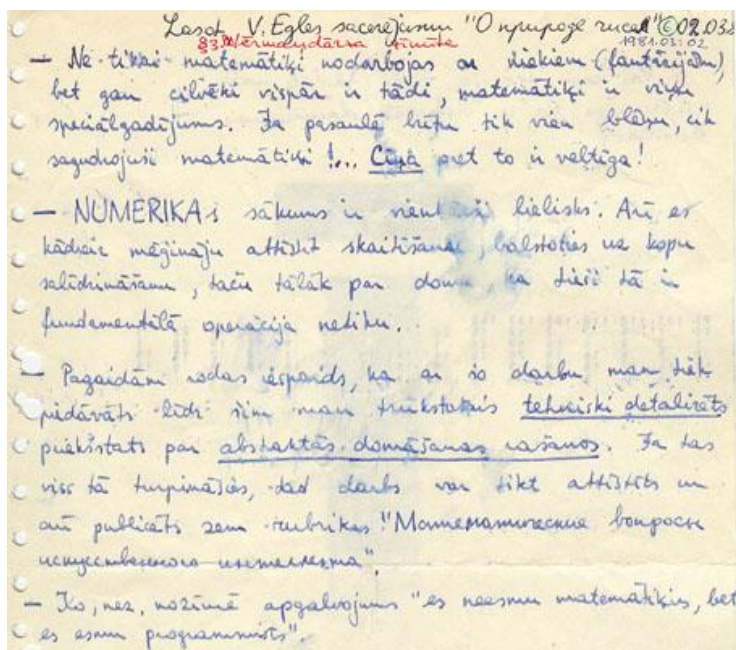 Lasot V. Egles sacerējumu "О природе чисел" ©02.032
§3. Mērmaņdārza 1981.03.02
— Ne tikai matemātiķi nodarbojas ar niekiem (fantāzijām),
bet gan cilvēki vispār ir tādi, matemātiķi ir viņu
speciālgadījums. Ja pasaulē būtu tik vien blēņu, cik
sagudrojuši matemātiķi!... Cīņa pret to ir veltīga!
— NUMERIKAs sākums ir vienkārši lielisks. Arī es
kādreiz mēģināju attīstīt skaitīšanu, balstoties uz kopu
salīdzināšanu, taču tālāk par domu, ka tieši tā ir
fundamentālā operācija netiku.
— Pagaidām rodas iespaids, ka ar šo darbu man tiek
piedāvāts līdz šim man trūkstošais tehniski detalizēts
priekšstats par abstraktās domāšanas rašanos. Ja tas
viss tā turpināsies, tad darbs var tikt attīstīts un
arī publicēts zem rubrikas "Математические вопросы
искусственного интеллекта".
— Ko, nez, nozīmē apgalvojums "es neesmu matemātiķis, bet
es esmu programmists".